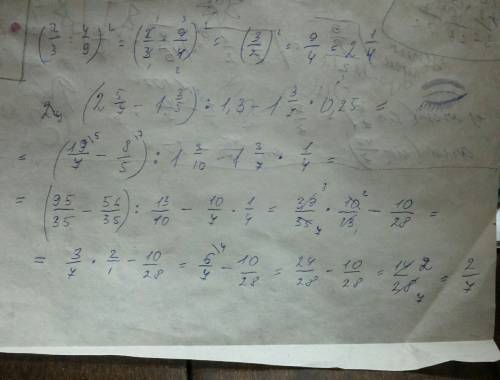 (2/3 : 4/9)² = (2/3 · 9/4)² = (3/2)² = 9/4 = 2 1/4
(2 5/7 − 1 3/5) : 1,3 − 1 3/7 · 0,25 =
= (19/7 − 8/5) : 1 3/10 − 1 3/7 · 1/4 =
= (95/35 − 56/35) : 13/10 − 10/7 · 1/4 = 39/35 · 10/13 − 10/28 =
= 3/7 · 2/1 − 10/28 = 6/7 − 10/28 = 24/28 − 10/28 = 14/28 = 2/7